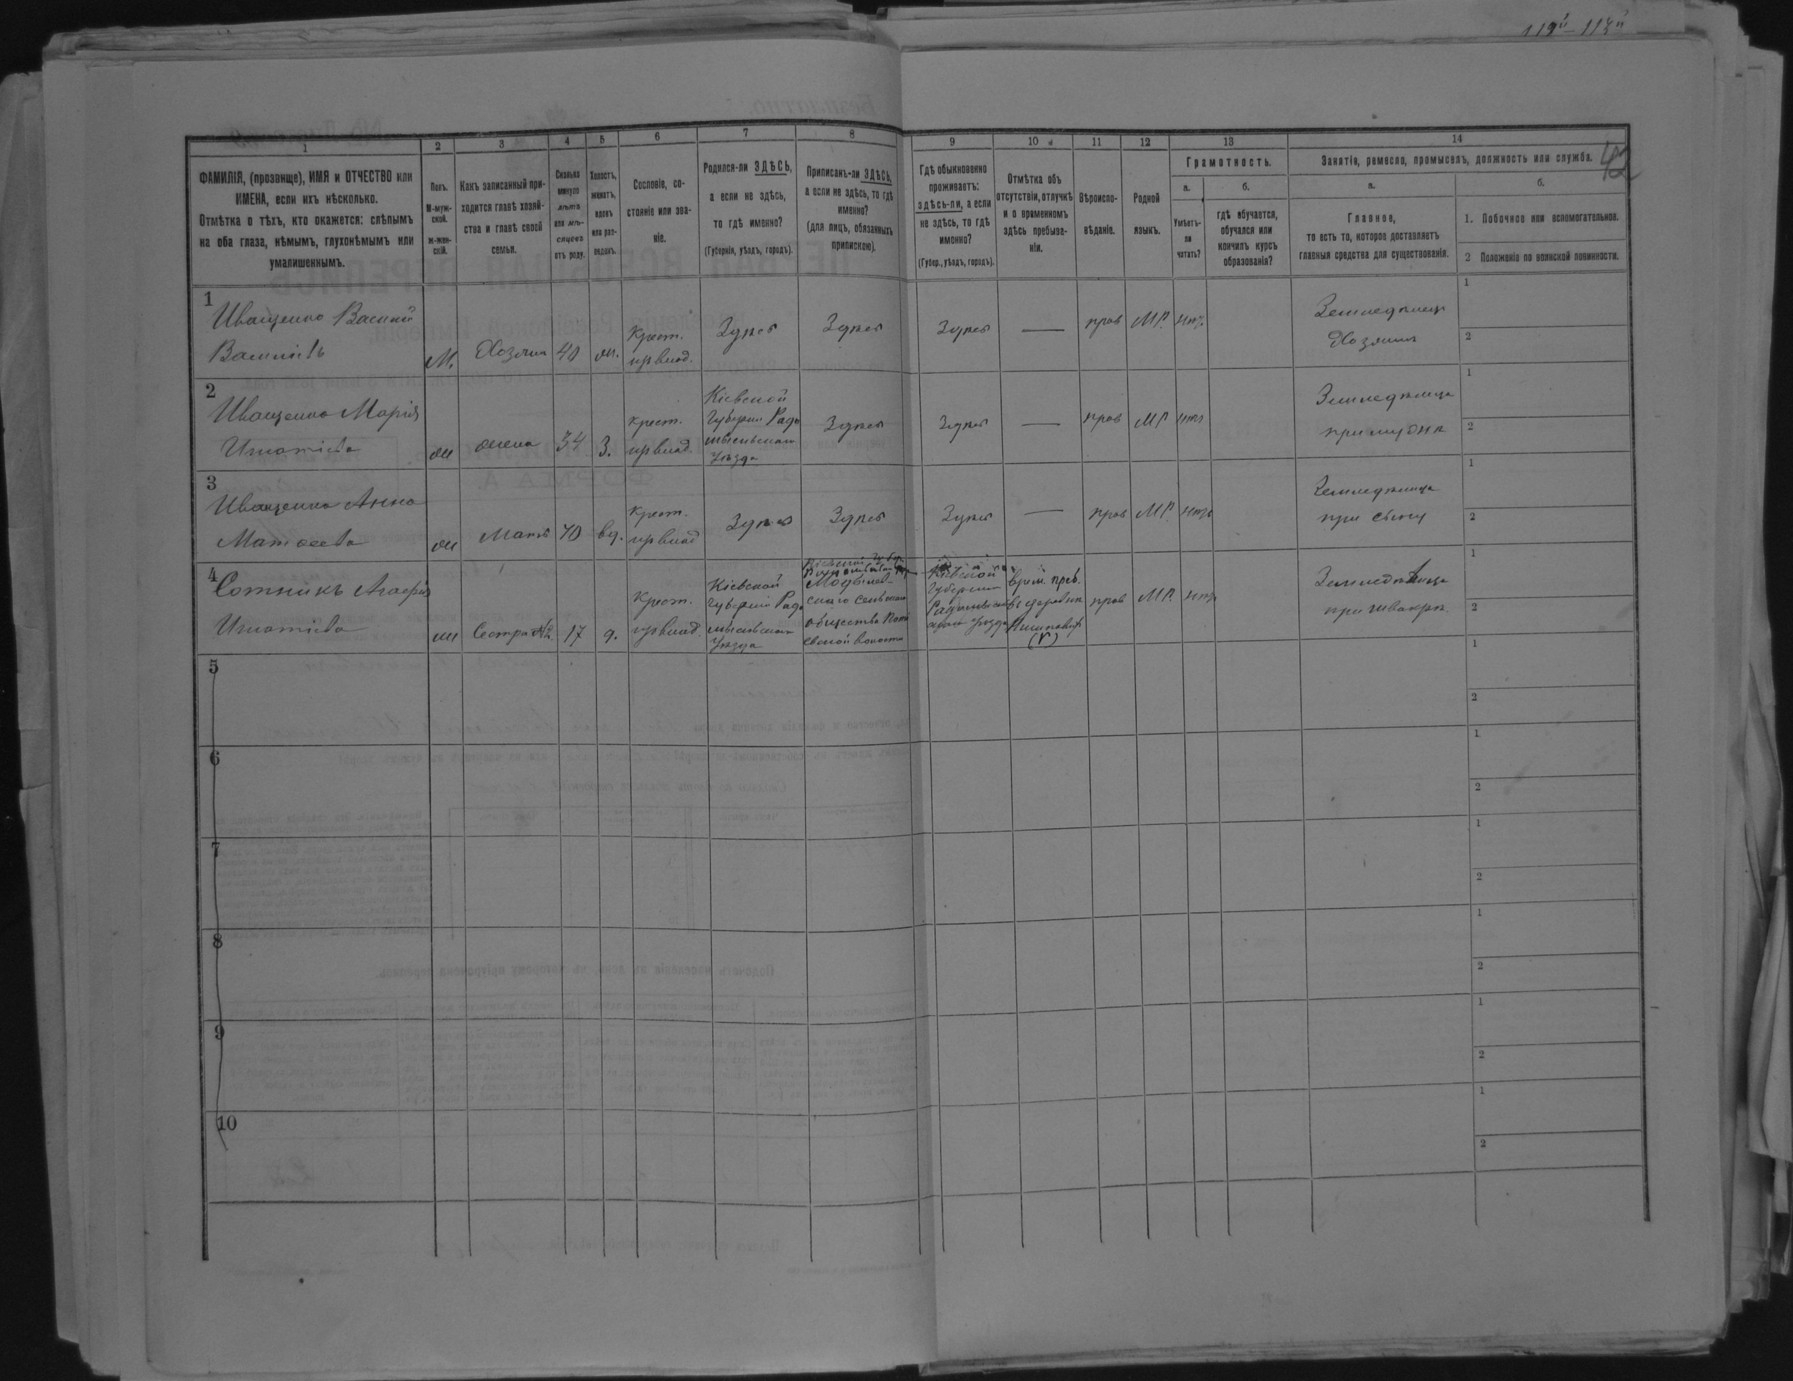 42
1 2 3 4 5 6 7 8 9 10 11 12 13 14
ФАМИЛІЯ, (прозвище), ИМЯ и ОТЧЕСТВО или
ИМЕНА, если ихъ нѣсколько.
Отмѣтка о тѣхъ, кто окажется: слѣпымъ
на оба глаза, нѣмымъ, глухонѣмымъ или
умалишеннымъ.
Полъ.
М-муж-
ской.
ж-жен-
скій.
Какъ записанный при-
ходится главѣ хозяй-
ства и главѣ своей
семьи.
Сколько
минуло
лѣтъ
или мѣ-
сяцевъ
отъ роду.
Холостъ,
женатъ,
вдовъ
или раз-
веденъ.
Сословіе, со-
стояніе или зва-
ніе.
Родился-ли ЗДѢСЬ,
а если не здѣсь,
то гдѣ именно?
(Губернія, уѣздъ, городъ).
Приписанъ-ли ЗДѢСЬ,
а если не здѣсь, то гдѣ
именно?
(для лицъ, обязанныхъ
припискою).
Гдѣ обыкновенно
проживаетъ:
здѣсь-ли, а если
не здѣсь, то гдѣ
именно?
(Губер., уѣздъ, городъ).
Отмѣтка объ
отсутствіи, отлучкѣ
и о временномъ
здѣсь пребыва-
ніи.
Вѣроиспо-
вѣданіе.
Родной
языкъ.
Грамотность.
а.
Умѣетъ-
ли
читать?
б.
гдѣ обучается,
обучался или
кончилъ курсъ
образованія?
Занятіе, ремесло, промыселъ, должность или служба.
а.
Главное,
то есть то, которое доставляетъ
главныя средства для существованія.
б.
1. Побочное или вспомогательное.
2 Положеніе по воинской повинности.
1
Иващенко Василій
Васильевъ
М. Хозяинъ 40 ж. Крест. Здѣсь Здѣсь Здѣсь — прав МР. нѣтъ Земледѣлецъ
Хозяинъ
1
2
2
Иващенко Марія
Игнатіева
ж жена 34 З. крест. Кіевской
Губерніи
Уѣзда
Здѣсь Здѣсь — прав МР нѣтъ Земледѣлица
при мужѣ
1
2
3
Иващенко Анна
ж Мать 70 вд. крест. Здѣсь Здѣсь Здѣсь — прав МР. нѣтъ Земледѣлица
при сынѣ
1
2
4
Сотникъ Агафія
Игнатіева
ж Сестра №2 17 д. Крест. Кіевской
Губерніи
Уѣзда
общества
Кіевской
Губерніи
Уѣзда
врем. преб.
прав МР. нѣтъ
1
2
5
1
2
6
1
2
7
1
2
8
1
2
9
1
2
10
1
2